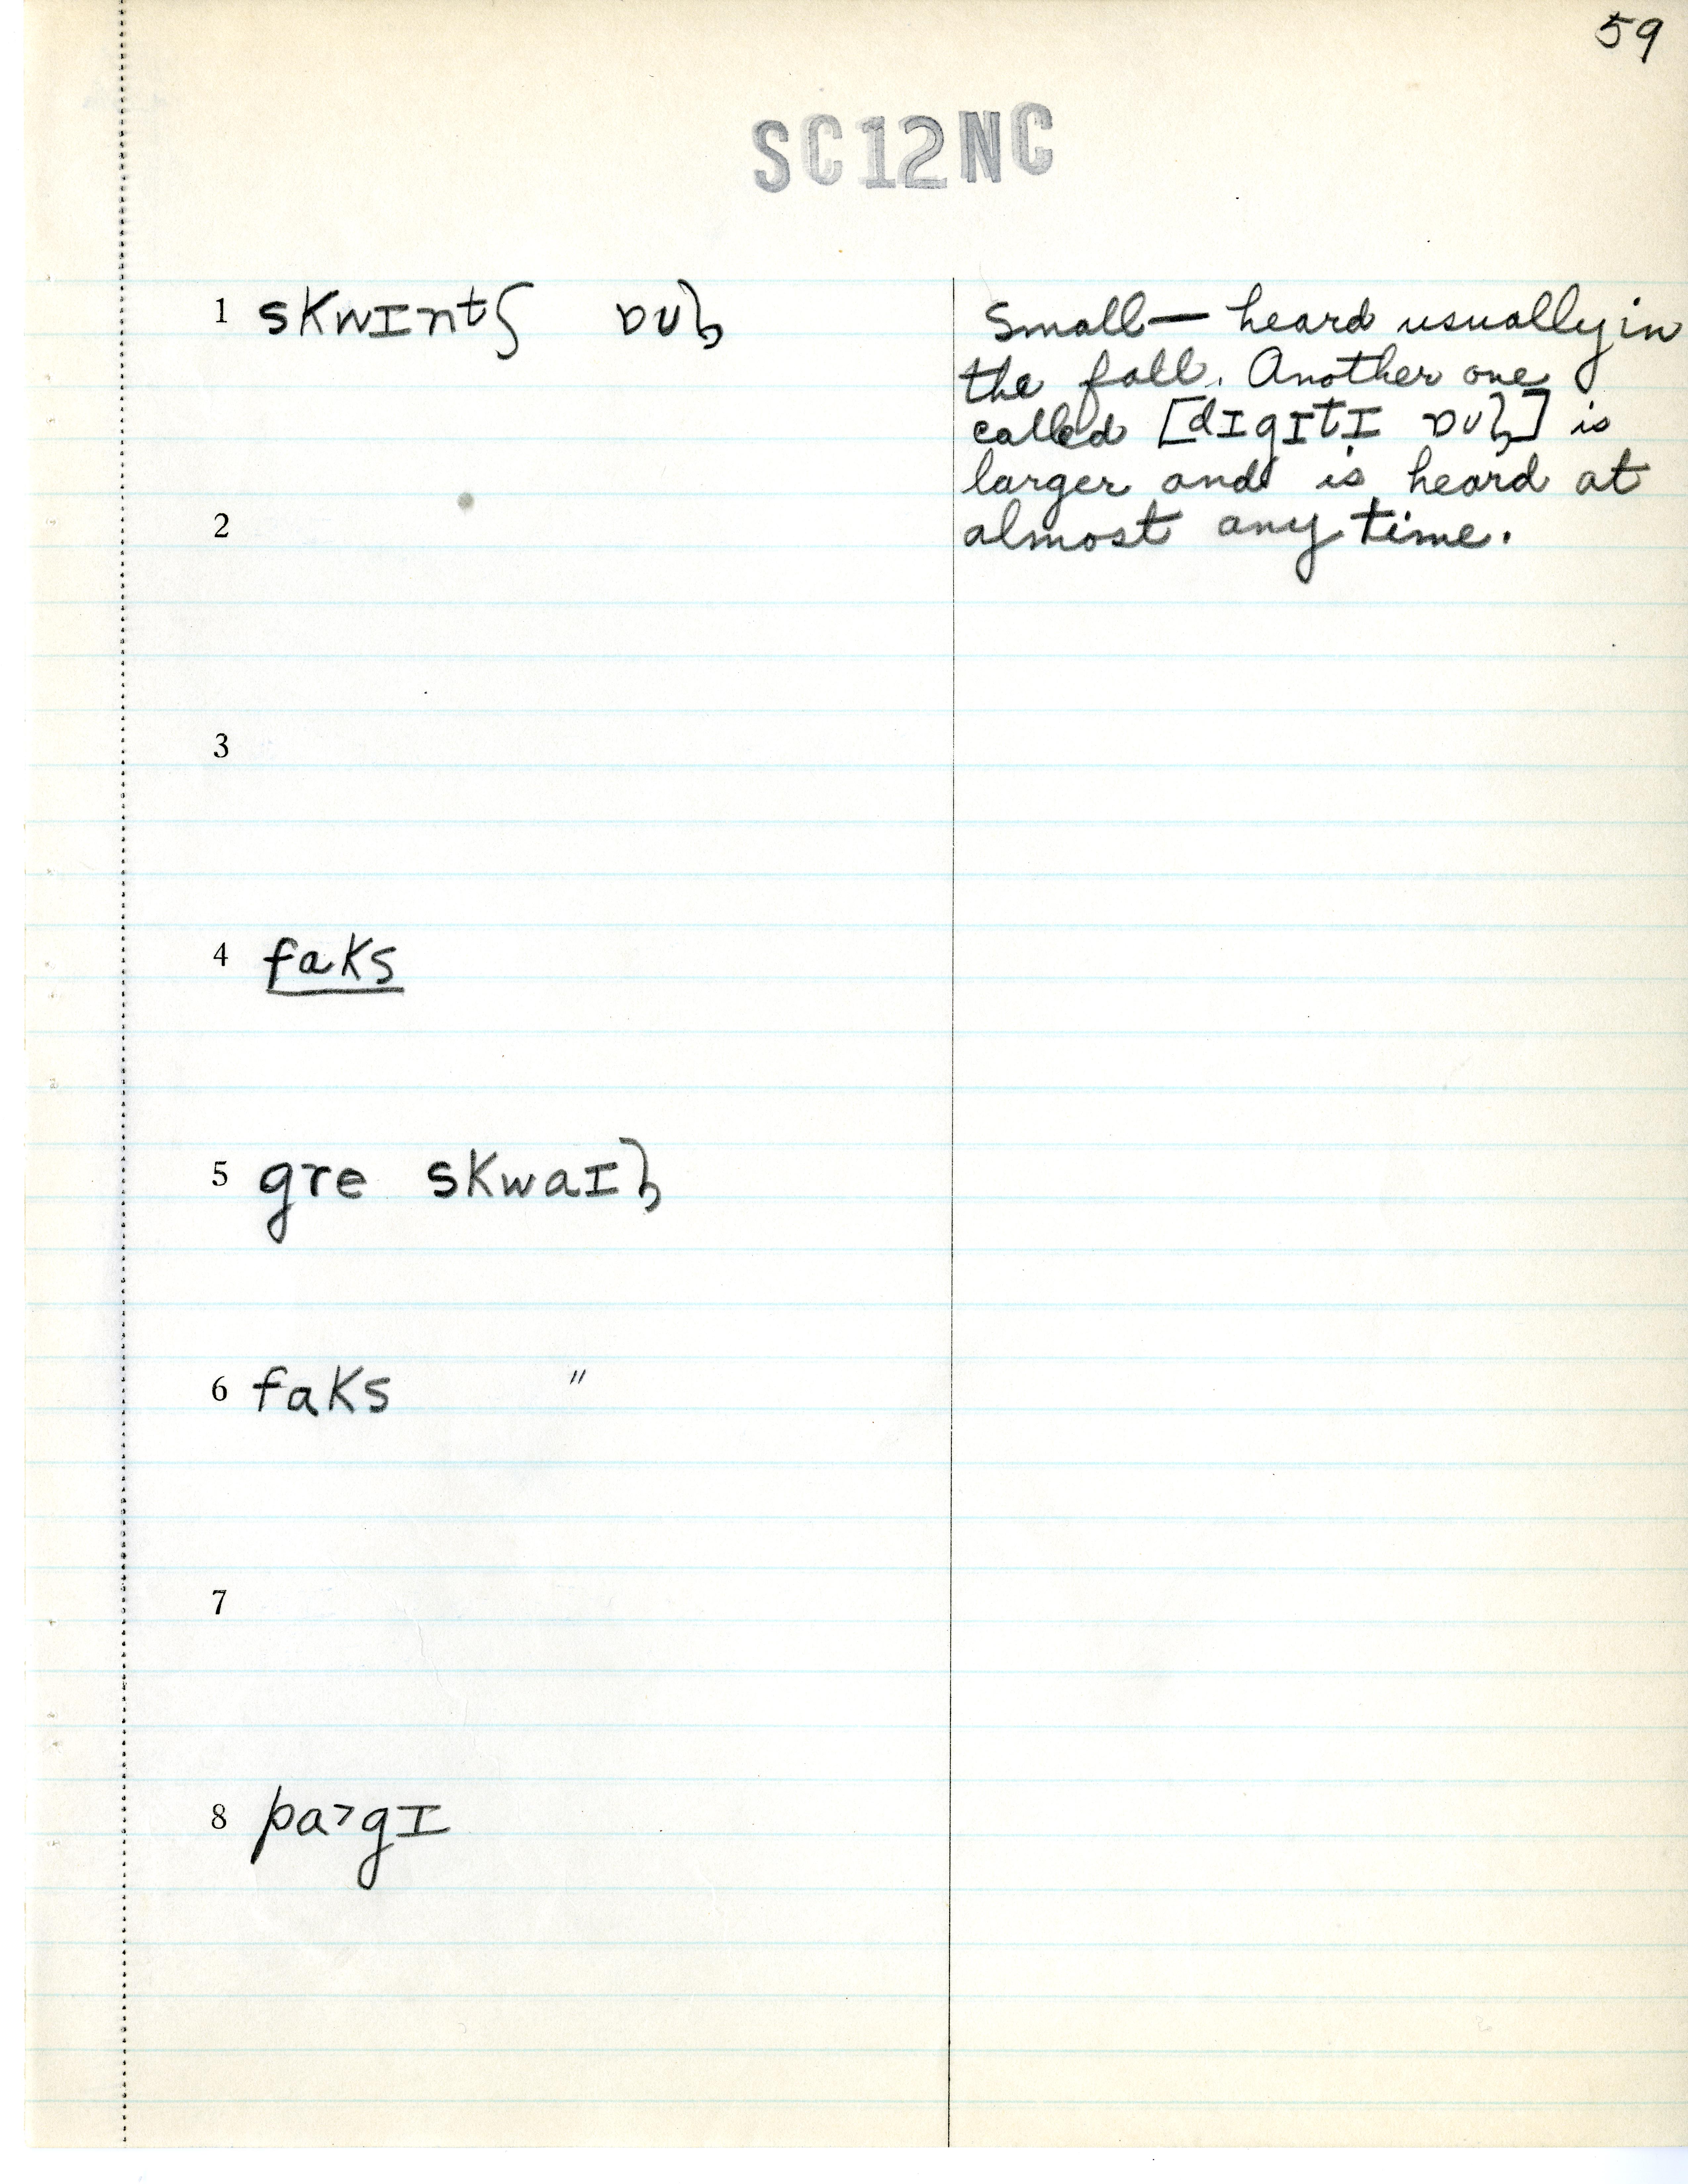 59
SC12NC
1 skwɪntʃ ɒʊɫ
Small — heard usually in
the fall. Another one
called [dɪgɪtɪ ɒʊɫ] is
larger and is heard at
almost any time.
2
3
4 faks
5 gre skwaɪɫ
6 faks "
7
8 pa˃gɪ